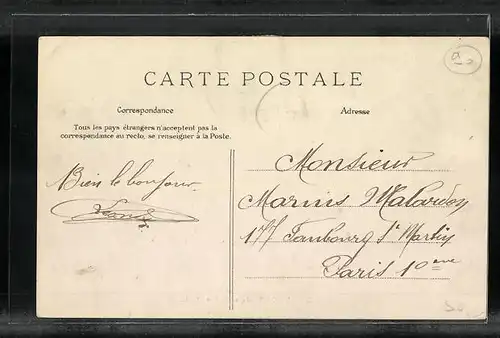 CARTE POSTALE
Correspondance
Tous les pays étrangers n'acceptent pas la
correspondance au recto, se renseigner à la Poste.
Adresse
Bien le bonjour
Monsieur
Marius
177 Faubourg St Martin
Paris 10eme